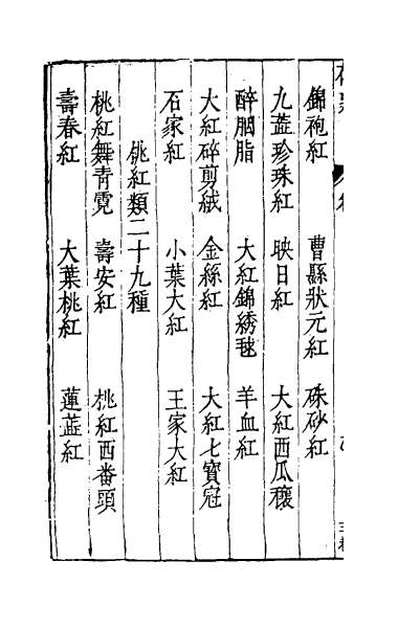 錦袍紅　曹縣狀元紅　硃砂紅
九蕋珍珠紅　映日紅　大紅西瓜穰
醉胭脂　大紅錦綉毬　羊血紅
大紅碎剪絨　金絲紅　大紅七寶冠
石家紅　小葉大紅　王家大紅
桃紅類二十九種
桃紅舞青霓　壽安紅　桃紅西番頭
壽春紅　大葉桃紅　蓮蕋紅